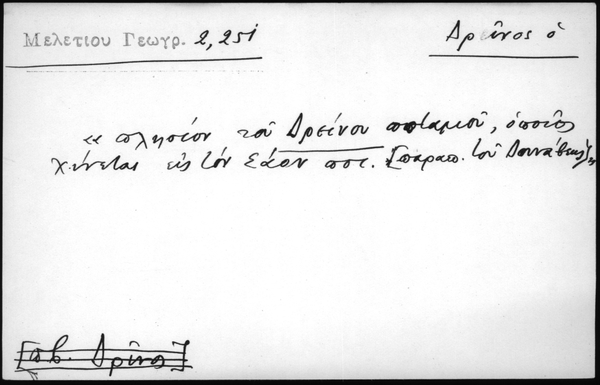 Μελετίου Γεωγρ. 2, 251
Δρεῖνος ὁ
« πλησίον τοῦ Δρείνου ποταμοῦ, ὁποῖος
χύνεται εἰς τὸν Σάον ποτ. [παραπ. τοῦ Δουνάβεως]»
[πβ. Δρῖνος]